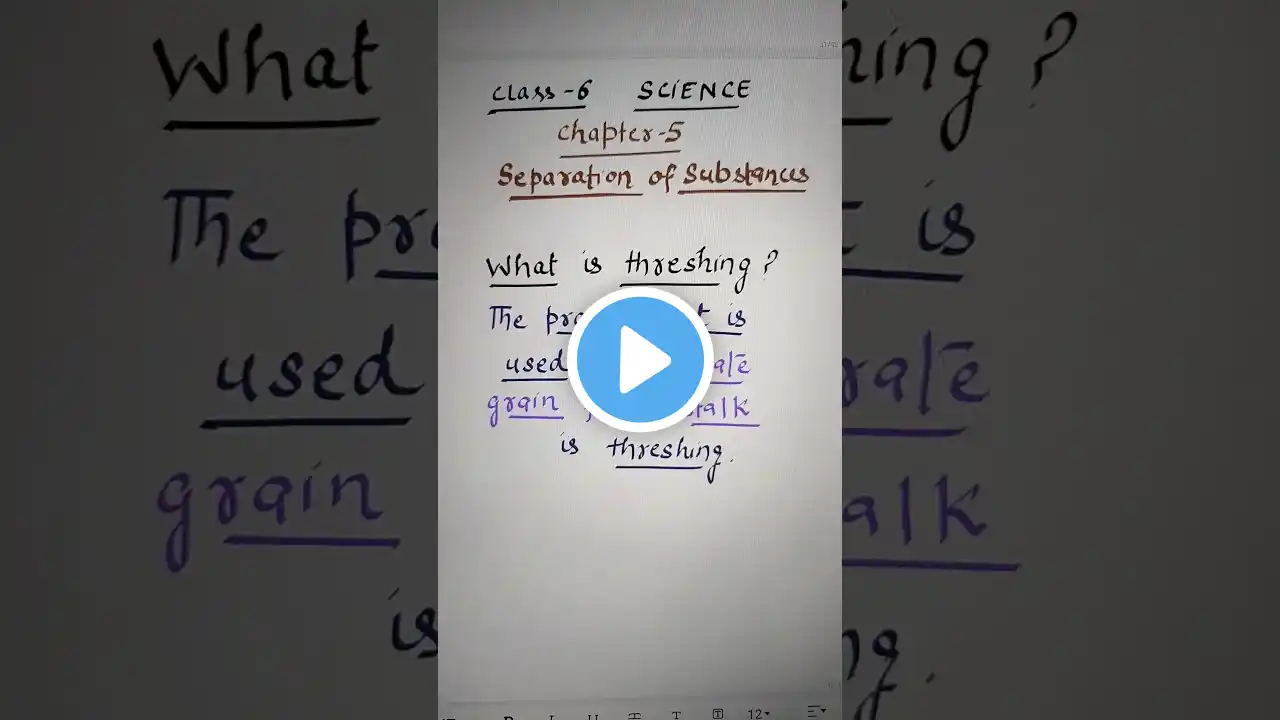 class-6 SCIENCE
Chapter-5
Separation of Substances
What is threshing?
The is
used
grain
is threshing.
12